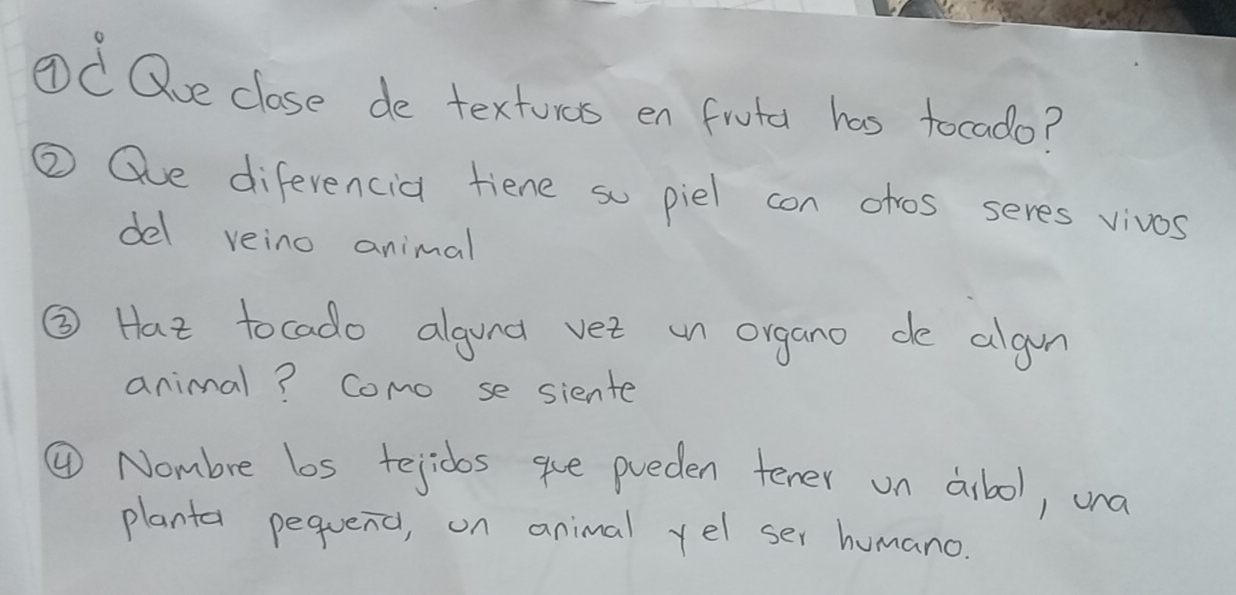 ① ¿ Que clase de texturas en fruta has tocado?
② Que diferencia tiene su piel con otros seres vivos
del reino animal
③ Haz tocado alguna vez un organo de algun
animal? Como se siente
④ Nombre los tejidos que pueden tener un árbol, una
planta pequeña, un animal y el ser humano.